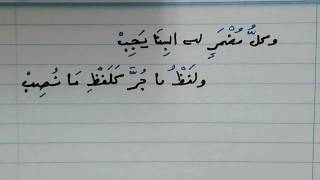 وكلُّ مُضْمَرٍ لهُ البِنَا يَجِبْ
ولَفْظُ ما جُرَّ كَلَفْظِ مَا نُصِبْ